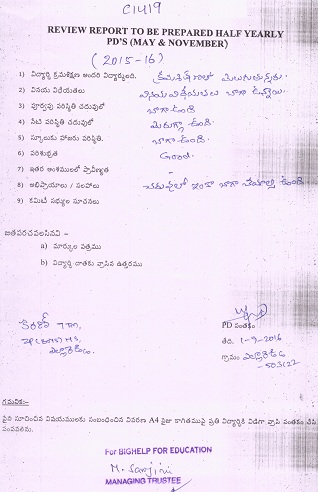 C1419
REVIEW REPORT TO BE PREPARED HALF YEARLY
PD'S (MAY & NOVEMBER)
(2015-16)
1) విద్యార్థి క్రమశిక్షణ అందరి విద్యార్థులది. క్రమశిక్షణతో మెలుగుతున్నది.
2) వినయ విధేయతలు వినయవిధేయతలు బాగా ఉన్నాయి.
3) పూర్వపు పరిస్థితి చదువులో బాగా ఉంది
4) నేటి పరిస్థితి చదువుకో మెరుగ్గా ఉంది.
5) స్కూలుకు హాజరు పరిస్థితి. బాగా ఉంది.
6) పరిశుభ్రత Good.
7) ఇతర అంశములలో ప్రావీణ్యత
8) అభిప్రాయాలు / సలహాలు చదువులో ఇంకా బాగా చేయాల్సి ఉంది
9) కమిటీ సభ్యుల సూచనలు
జతపరచవలసినవి –
a) మార్కుల పత్రము
b) విద్యార్థి దాతకు వ్రాసిన ఉత్తరము
PD సంతకం
తేది. 1-9-2016
గ్రామం ఎల్లారెడ్డి
-503122
గమనిక:-
పైన సూచించిన విషయములకు సంబంధించిన వివరణ A4 సైజు కాగితముపై ప్రతి విద్యార్థికి విడిగా వ్రాసి సంతకం చేసి
పంపవలెను.
For BIGHELP FOR EDUCATION
M. Sanjini
MANAGING TRUSTEE